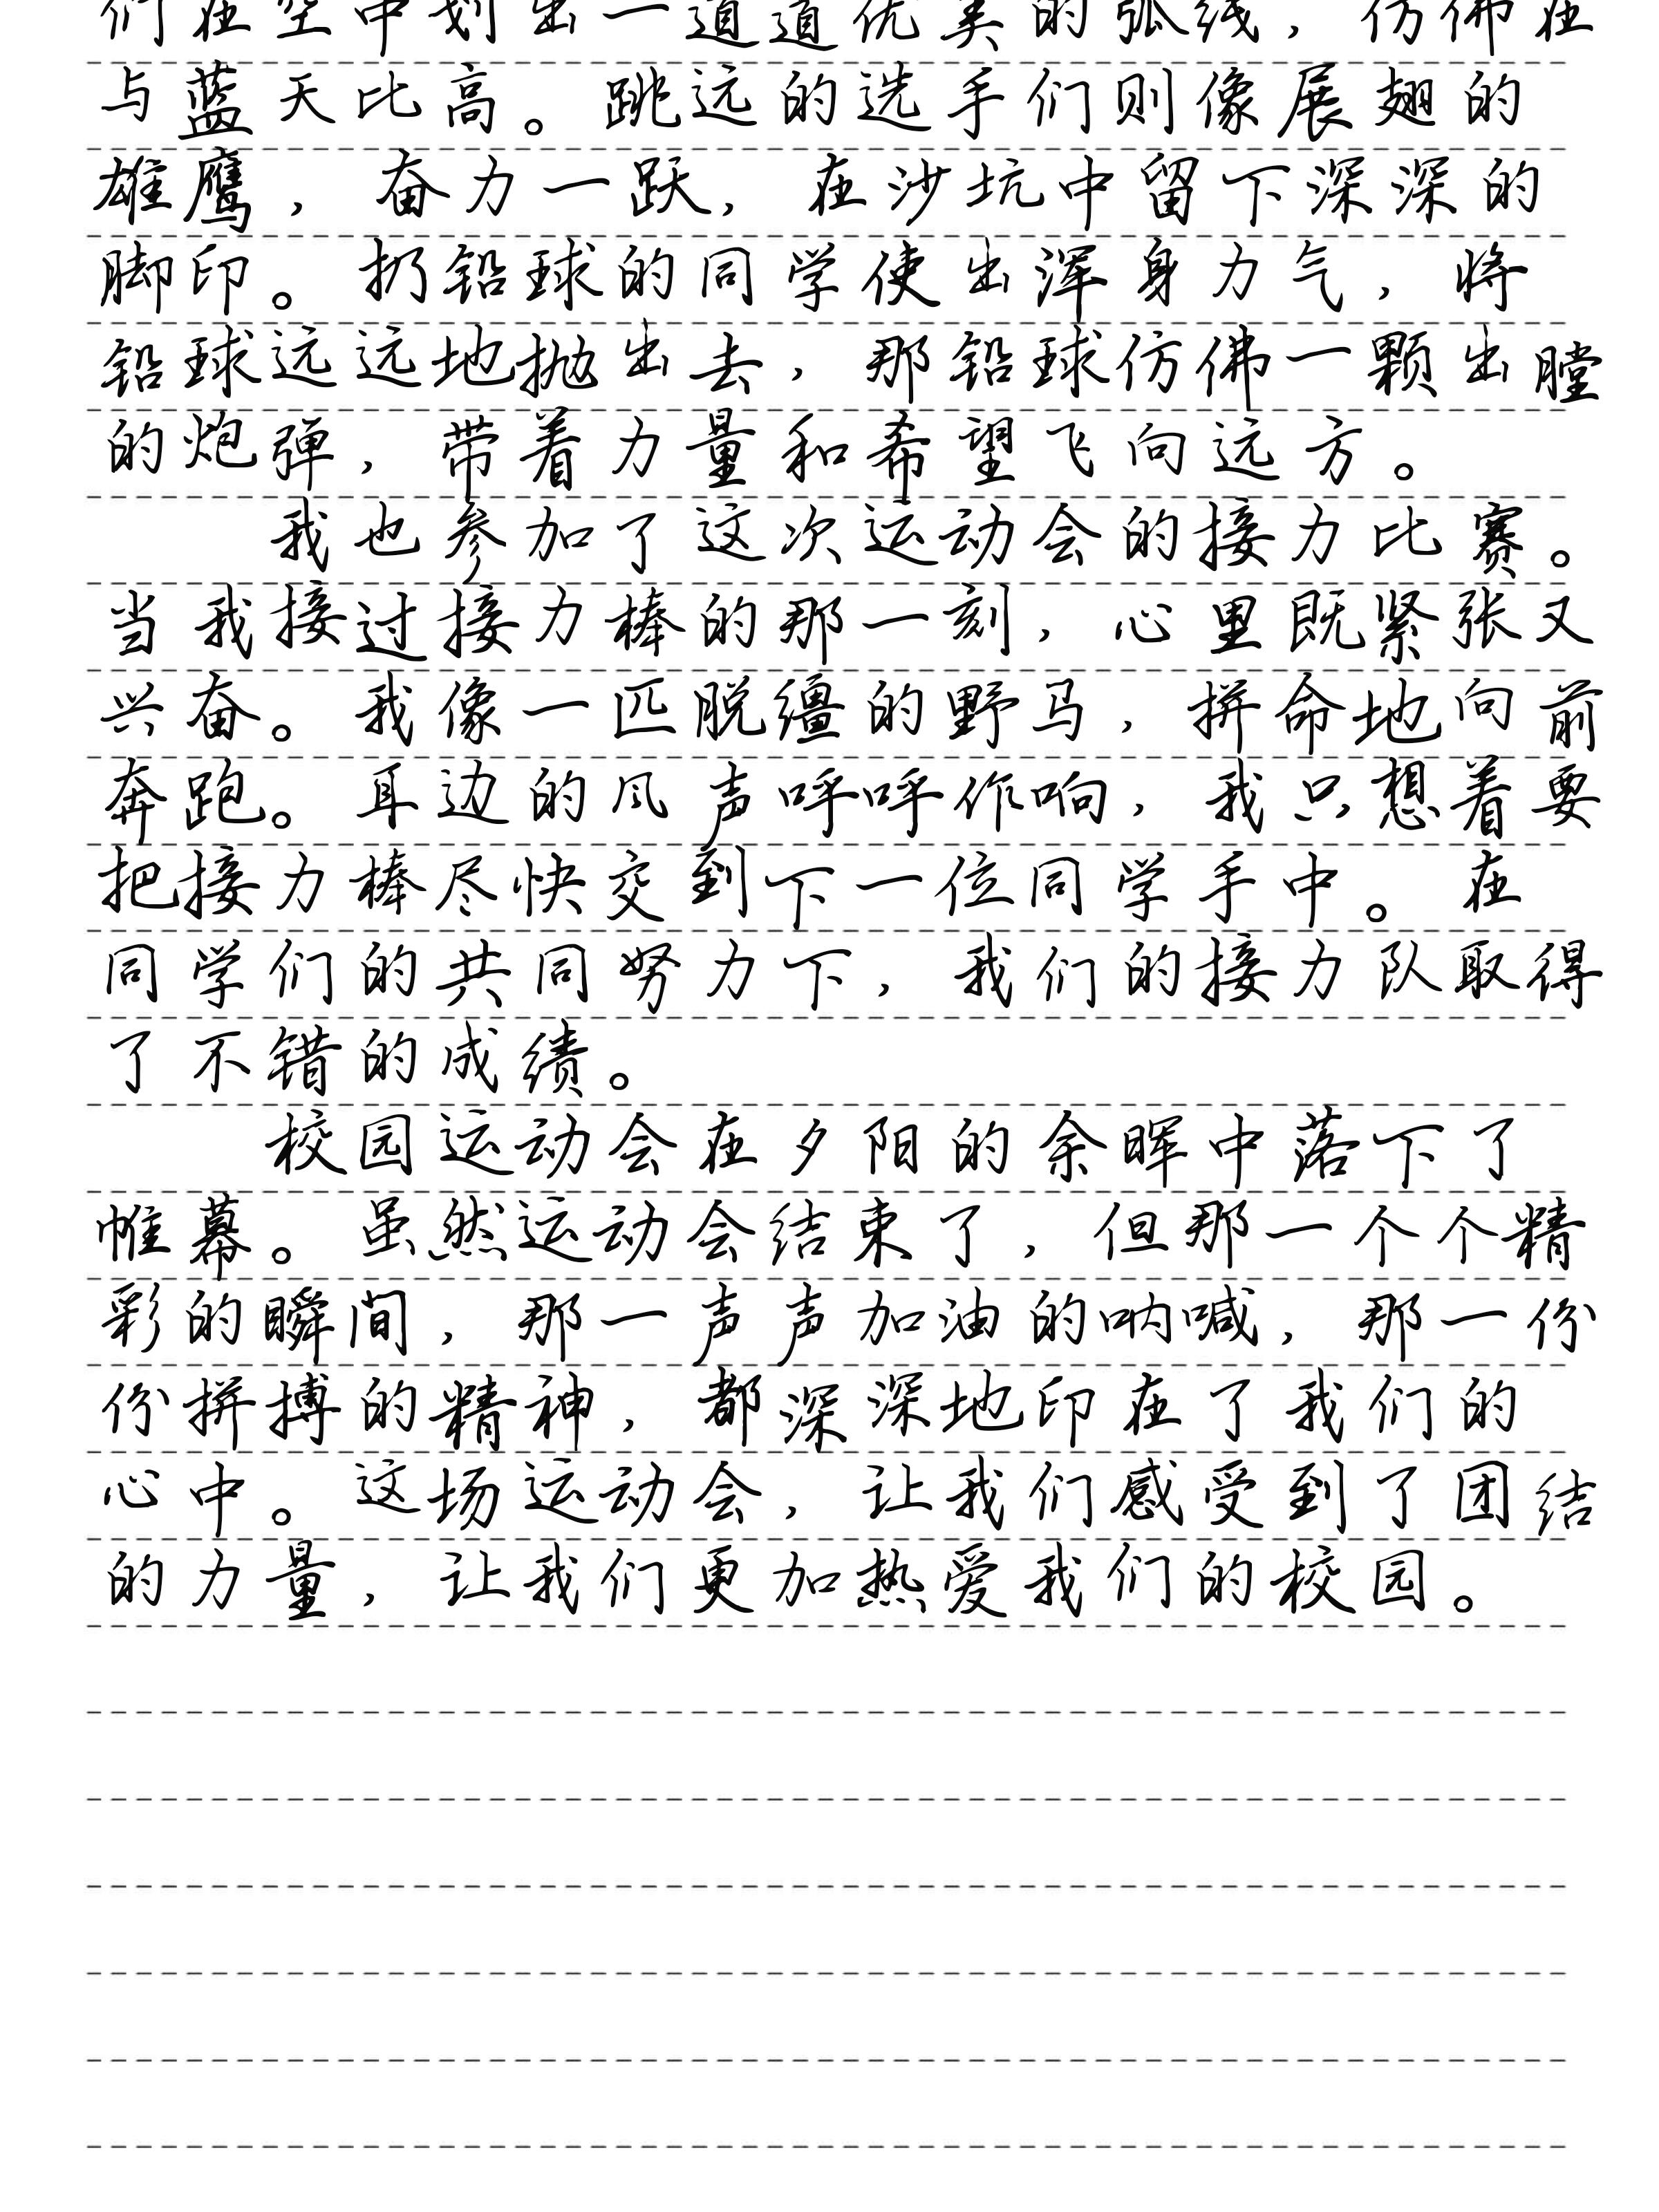 们在空中划出一道道优美的弧线，仿佛在
与蓝天比高。跳远的选手们则像展翅的
雄鹰，奋力一跃，在沙坑中留下深深的
脚印。扔铅球的同学使出浑身力气，将
铅球远远地抛出去，那铅球仿佛一颗出膛
的炮弹，带着力量和希望飞向远方。
我也参加了这次运动会的接力比赛。
当我接过接力棒的那一刻，心里既紧张又
兴奋。我像一匹脱缰的野马，拼命地向前
奔跑。耳边的风声呼呼作响，我只想着要
把接力棒尽快交到下一位同学手中。在
同学们的共同努力下，我们的接力队取得
了不错的成绩。
校园运动会在夕阳的余晖中落下了
帷幕。虽然运动会结束了，但那一个个精
彩的瞬间，那一声声加油的呐喊，那一份
份拼搏的精神，都深深地印在了我们的
心中。这场运动会，让我们感受到了团结
的力量，让我们更加热爱我们的校园。